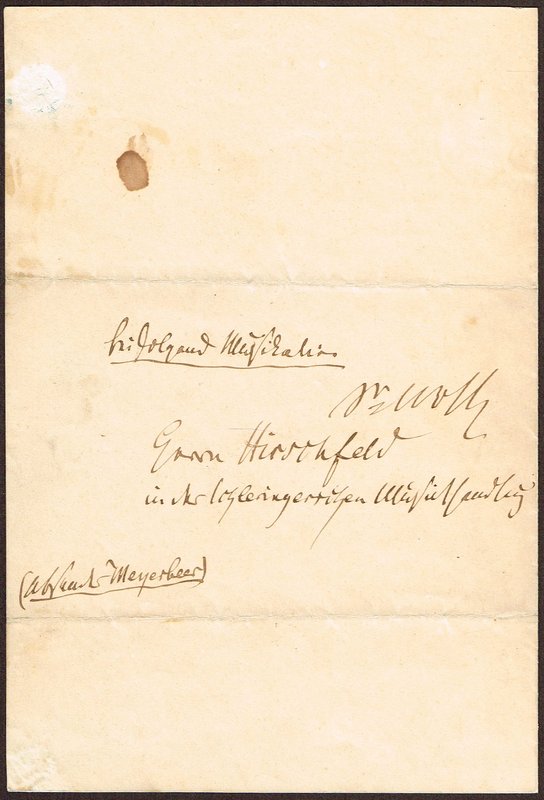 beifolgend Musikalien
Sr Wohl
Herrn Hirschfeld
in der Schlesingerschen Musikhandlung
(Absender Meyerbeer)